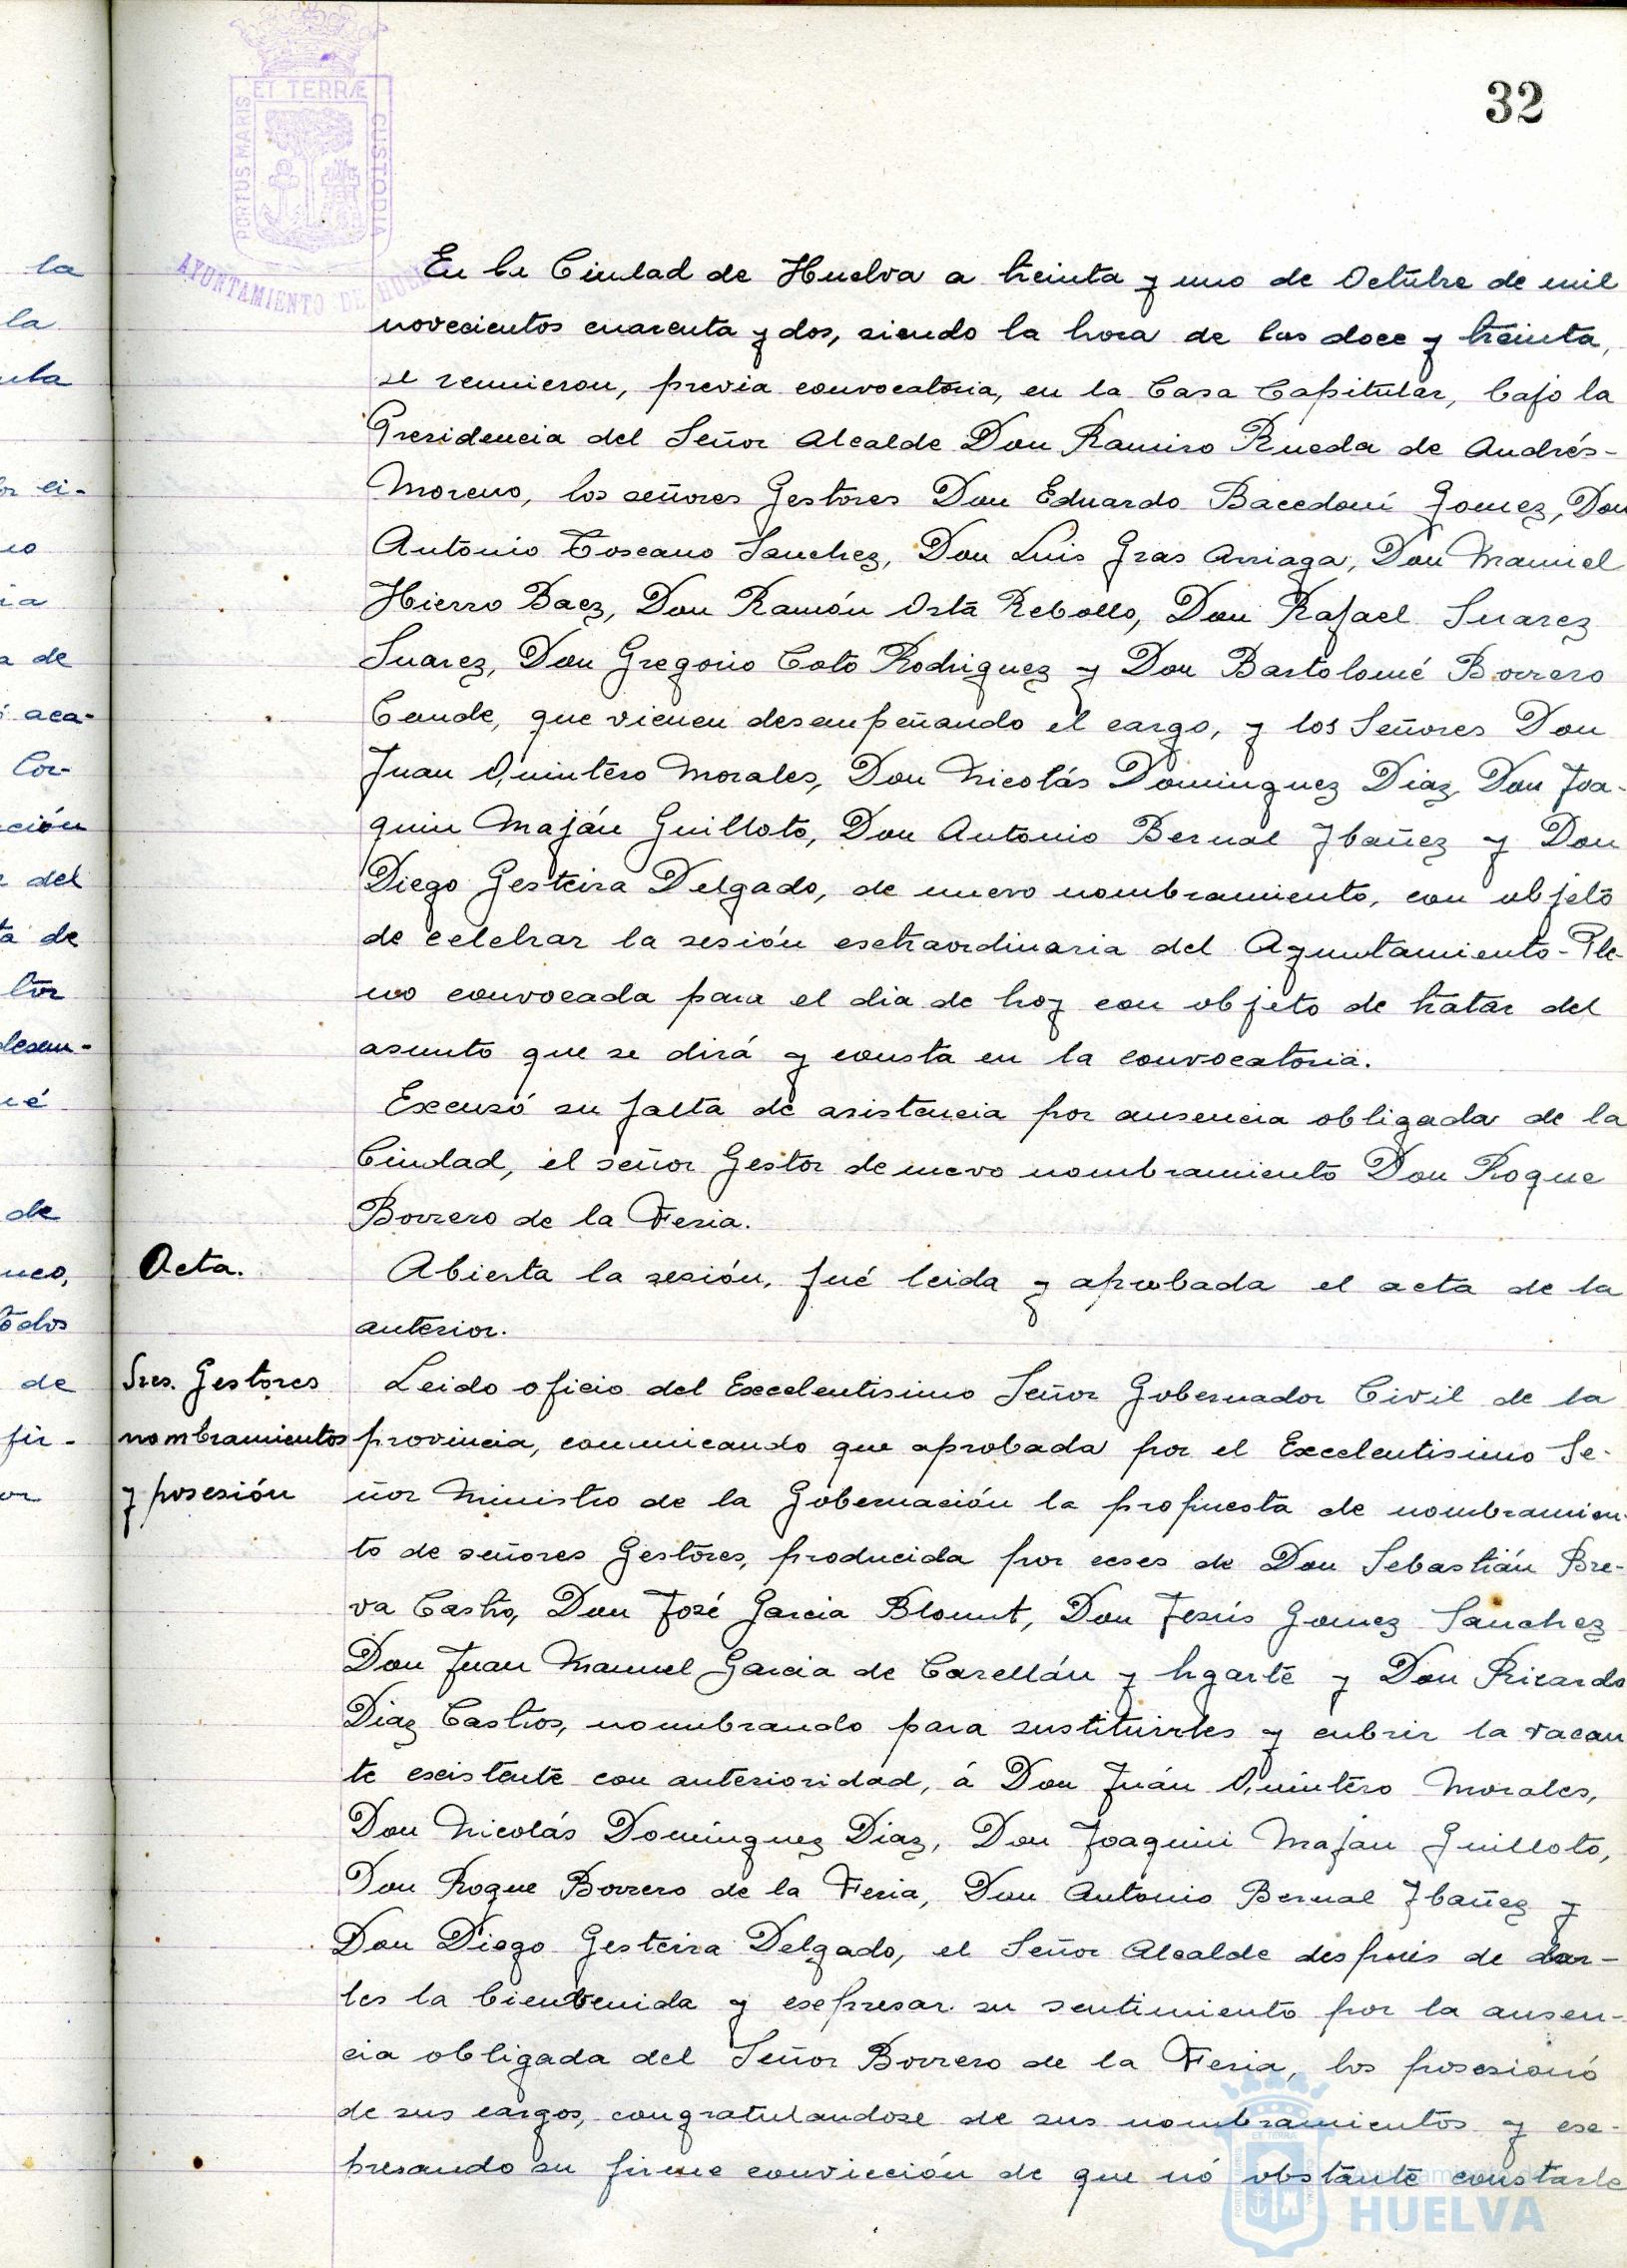 32
ET TERRÆ
PORTUS MARIS
CUSTODIA
AYUNTAMIENTO DE HUEL
la
la
or ci-
no
ia
a de
aca-
Cor-
ción
del
ta de
tor
desem-
de
todos
de
fir-
or
En la Ciudad de Huelva a treinta y uno de Octubre de mil
novecientos cuarenta y dos, siendo la hora de las doce y treinta,
se reunieron, previa convocatoria, en la Casa Capitular, bajo la
Presidencia del Señor Alcalde Don Ramiro Rueda de Andrés-
Moreno, los señores Gestores Don Eduardo Bacedoni Gomez, Don
Antonio Toscano Sanchez, Don Luis Gras Arriaga, Don Manuel
Hierro Baez, Don Ramón Orta Rebollo, Don Rafael Suarez
Suarez, Don Gregorio Coto Rodriguez y Don Bartolomé Borrero
Conde, que vienen desempeñando el cargo, y los Señores Don
Juan Quintero Morales, Don Nicolás Dominguez Diaz, Don Joa-
quin Maján Guilloto, Don Antonio Bernal Ybañez y Don
Diego Gesteira Delgado, de nuevo nombramiento, con objeto
de celebrar la sesión esctraordinaria del Ayuntamiento-Ple-
no convocada para el dia de hoy con objeto de tratar del
asunto que se dirá y consta en la convocatoria.
Excusó su falta de asistencia por ausencia obligada de la
Ciudad, el señor Gestor de nuevo nombramiento Don Roque
Borrero de la Feria.
Acta.
Abierta la sesión, fué leida y aprobada el acta de la
anterior.
Sres. Gestores
nombramientos
y posesión
Leido oficio del Excelentisimo Señor Gobernador Civil de la
provincia, comunicando que aprobada por el Excelentisimo Se-
ñor Ministro de la Gobernación la propuesta de nombramien-
to de señores Gestores, producida por ceses de Don Sebastián Bre-
va Castro, Don José Garcia Blount, Don Jesús Gomez Sanchez
Don Juan Manuel Garcia de Carellán y Ugarte y Don Ricardo
Diaz Castros, nombrando para sustituirles y cubrir la vacan
te escistente con anterioridad, á Don Juán Quintero Morales,
Don Nicolás Domínguez Diaz, Don Joaquin Majan Guilloto,
Don Roque Borrero de la Feria, Don Antonio Bernal Ybañez y
Don Diego Gesteira Delgado, el Señor Alcalde después de dar-
les la bienvenida y escpresar su sentimiento por la ausen-
cia obligada del Señor Borrero de la Feria, los posesionó
de sus cargos, congratulandose de sus nombramientos y esc-
presando su firme convicción de que nó obstante constarle
HUELVA